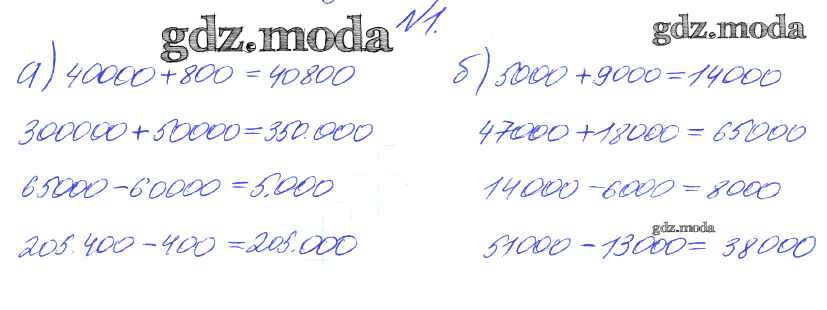 №1.
gdz.moda
gdz.moda
а) 40000 + 800 = 40800
300000 + 50000 = 350.000
65000 - 60000 = 5.000
205.400 - 400 = 205.000
б) 5000 + 9000 = 14000
47000 + 18000 = 65000
14000 - 6000 = 8000
gdz.moda
51000 - 13000 = 38000